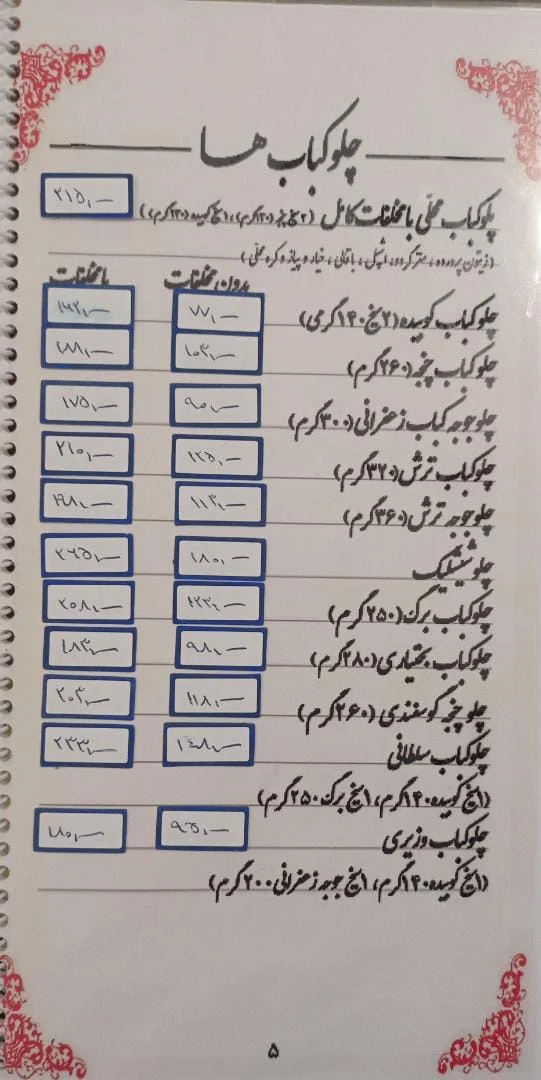 چلوکباب ها
پلوکباب محلی با مخلفات کامل (۲سیخ جوجه (۱۲۰گرم)، ۱سیخ کوبیده (۱۲۰گرم)) ۲۱۵,۰۰
(زیتون پرورده، مترگردو، اشپل، باقالی، خیار و پیاز و کره محلی)
بدون مخلفات با مخلفات
چلوکباب کوبیده (۲سیخ ۱۴۰گرمی) ۷۷,۰۰ ۱۶۲,۰۰
چلوکباب چنجه (۲۶۰گرم) ۱۰۳,۰۰ ۱۸۸,۰۰
چلو جوجه کباب زعفرانی (۳۰۰گرم) ۹۰,۰۰ ۱۷۵,۰۰
چلوکباب ترش (۳۲۰گرم) ۱۲۵,۰۰ ۲۱۰,۰۰
چلو جوجه ترش (۳۶۰گرم) ۱۱۳,۰۰ ۱۹۸,۰۰
چلو شیشلیک ۱۸۰,۰۰ ۲۶۵,۰۰
چلوکباب برگ (۲۵۰گرم) ۱۲۳,۰۰ ۲۰۸,۰۰
چلوکباب بختیاری (۲۸۰گرم) ۹۸,۰۰ ۱۸۳,۰۰
چلو چنجه گوسفندی (۲۶۰گرم) ۱۱۸,۰۰ ۲۰۳,۰۰
چلوکباب سلطانی ۱۴۸,۰۰ ۲۳۳,۰۰
(۱سیخ کوبیده ۱۴۰گرم، ۱سیخ برگ ۲۵۰گرم)
چلوکباب وزیری ۹۵,۰۰ ۱۸۰,۰۰
(۱سیخ کوبیده ۱۴۰گرم، ۱سیخ جوجه زعفرانی ۲۰۰گرم)
۵